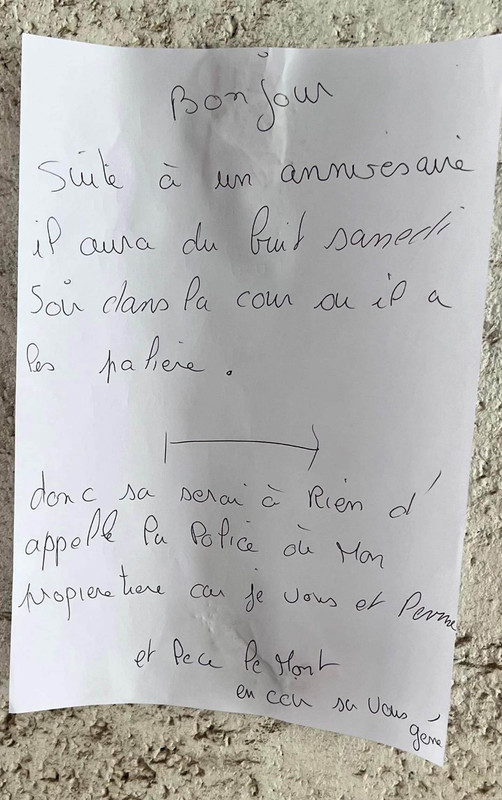 Bonjour
Suite à un annivesaire
il aura du buit samedi
Soir dans la cour ou il a
les palière .
donc sa serai à Rien d'
appellé la Police où Mon
propieretiere car je vous et Perme
et
en cou sa vous
géne